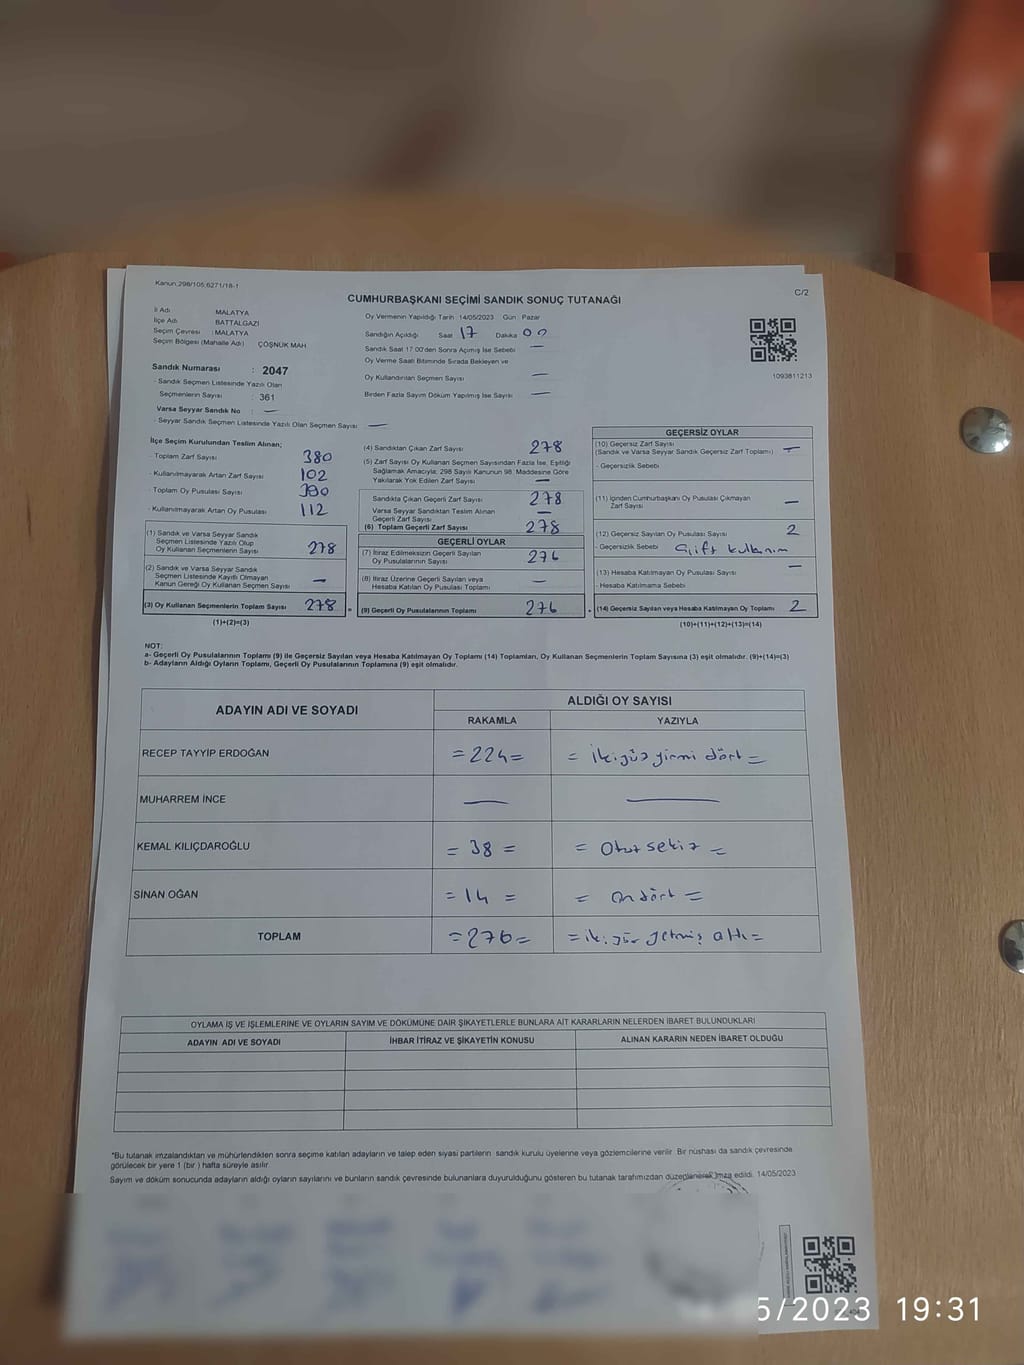 Kanun,298/105;6271/18-1
C/2
CUMHURBAŞKANI SEÇİMİ SANDIK SONUÇ TUTANAĞI
İl Adı MALATYA
İlçe Adı BATTALGAZİ
Seçim Çevresi : MALATYA
Seçim Bölgesi (Mahalle Adı) ÇÖŞNÜK MAH
Oy Vermenin Yapıldığı Tarih : 14/05/2023 Gün : Pazar
Sandığın Açıldığı Saat 17 Dakika 00
Sandık Saat 17.00'den Sonra Açımış İse Sebebi —
Oy Verme Saati Bitiminde Sırada Bekleyen ve
Oy Kullandırılan Seçmen Sayısı —
Birden Fazla Sayım Döküm Yapılmış İse Sayısı —
1093811213
Sandık Numarası : 2047
- Sandık Seçmen Listesinde Yazılı Olan
Seçmenlerin Sayısı : 361
Varsa Seyyar Sandık No : —
- Seyyar Sandık Seçmen Listesinde Yazılı Olan Seçmen Sayısı : —
İlçe Seçim Kurulundan Teslim Alınan;
- Toplam Zarf Sayısı 380
- Kullanılmayarak Artan Zarf Sayısı 102
- Toplam Oy Pusulası Sayısı
- Kullanılmayarak Artan Oy Pusulası 112
(1) Sandık ve Varsa Seyyar Sandık
Seçmen Listesinde Yazılı Olup
Oy Kullanan Seçmenlerin Sayısı 278
(2) Sandık ve Varsa Seyyar Sandık
Seçmen Listesinde Kayıtlı Olmayan
Kanun Gereği Oy Kullanan Seçmen Sayısı —
(3) Oy Kullanan Seçmenlerin Toplam Sayısı 278
(1)+(2)=(3)
(4) Sandıktan Çıkan Zarf Sayısı 278
(5) Zarf Sayısı Oy Kullanan Seçmen Sayısından Fazla İse, Eşitliği
Sağlamak Amacıyla; 298 Sayılı Kanunun 98. Maddesine Göre
Yakılarak Yok Edilen Zarf Sayısı —
Sandıkta Çıkan Geçerli Zarf Sayısı 278
Varsa Seyyar Sandıktan Teslim Alınan
Geçerli Zarf Sayısı —
(6) Toplam Geçerli Zarf Sayısı 278
GEÇERLİ OYLAR
(7) İtiraz Edilmeksizin Geçerli Sayılan
Oy Pusulasının Sayısı 276
(8) İtiraz Üzerine Geçerli Sayılan veya
Hesaba Katılan Oy Pusulası Toplamı —
(9) Geçerli Oy Pusulalarının Toplamı 276
GEÇERSİZ OYLAR
(10) Geçersiz Zarf Sayısı
(Sandık ve Varsa Seyyar Sandık Geçersiz Zarf Toplamı) —
- Geçersizlik Sebebi
(11) İçinden Cumhurbaşkanı Oy Pusulası Çıkmayan
Zarf Sayısı —
(12) Geçersiz Sayılan Oy Pusulası Sayısı 2
- Geçersizlik Sebebi Çift kullanım
(13) Hesaba Katılmayan Oy Pusulası Sayısı —
- Hesaba Katılmama Sebebi
(14) Geçersiz Sayılan veya Hesaba Katılmayan Oy Toplamı 2
(10)+(11)+(12)+(13)=(14)
NOT:
a- Geçerli Oy Pusulalarının Toplamı (9) ile Geçersiz Sayılan veya Hesaba Katılmayan Oy Toplamı (14) Toplamları, Oy Kullanan Seçmenlerin Toplam Sayısına (3) eşit olmalıdır. (9)+(14)=(3)
b- Adayların Aldığı Oyların Toplamı, Geçerli Oy Pusulalarının Toplamına (9) eşit olmalıdır.
ADAYIN ADI VE SOYADI
ALDIĞI OY SAYISI
RAKAMLA YAZIYLA
RECEP TAYYİP ERDOĞAN =224= = İkiyüz yirmi dört =
MUHARREM İNCE — —
KEMAL KILIÇDAROĞLU = 38 = = Otuz sekiz =
SİNAN OĞAN = 14 = = On dört =
TOPLAM =276= = ikiyüz yetmiş altı =
OYLAMA İŞ VE İŞLEMLERİNE VE OYLARIN SAYIM VE DÖKÜMÜNE DAİR ŞİKAYETLERLE BUNLARA AİT KARARLARIN NELERDEN İBARET BULUNDUKLARI
ADAYIN ADI VE SOYADI İHBAR İTİRAZ VE ŞİKAYETİN KONUSU ALINAN KARARIN NEDEN İBARET OLDUĞU
*Bu tutanak imzalandıktan ve mühürlendikten sonra seçime katılan adayların ve talep eden siyasi partilerin sandık kurulu üyelerine veya gözlemcilerine verilir. Bir nüshası da sandık çevresinde
görülecek bir yere 1 (bir ) hafta süreyle asılır.
Sayım ve döküm sonucunda adayların aldığı oyların sayılarını ve bunların sandık çevresinde bulunanlara duyurulduğunu gösteren bu tutanak tarafımızdan düzenlenerek imza edildi. 14/05/2023
5/2023 19:31